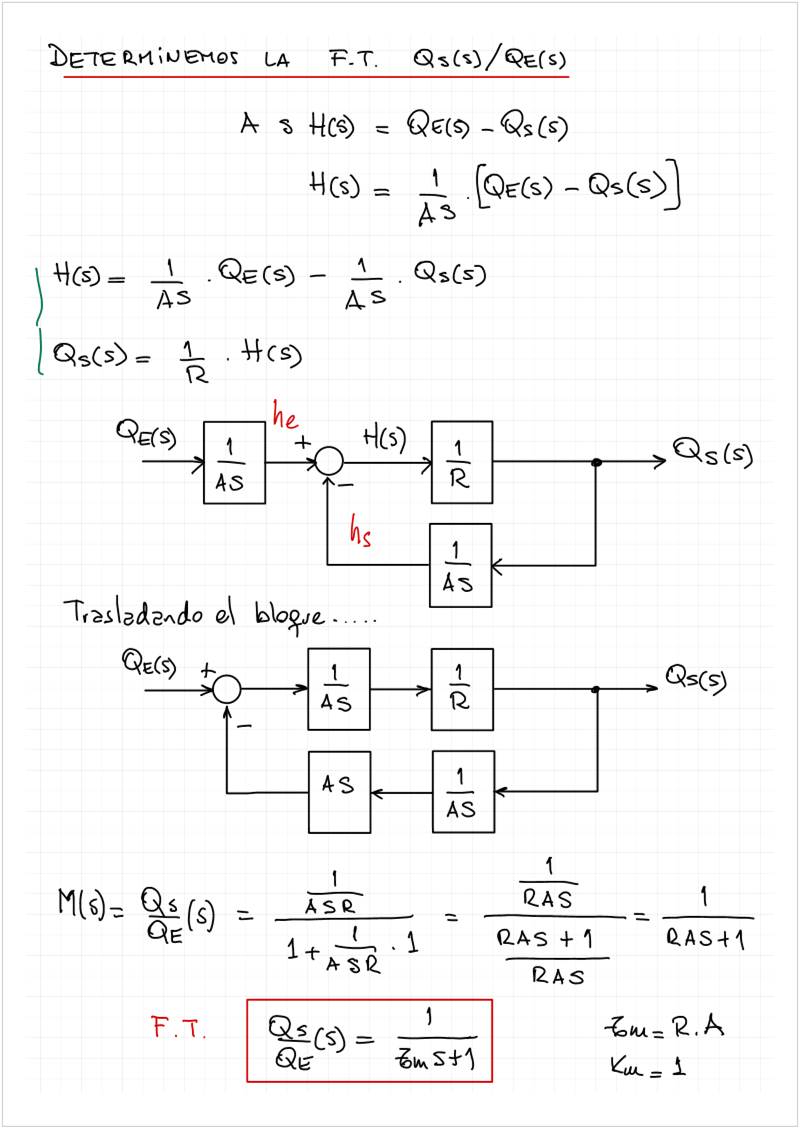 DETERMINEMOS LA F.T. Qs(s)/QE(s)
A s H(s) = QE(s) - Qs(s)
H(s) = 1/AS . [QE(s) - Qs(s)]
H(s) = 1/AS . QE(s) - 1/AS . Qs(s)
Qs(s) = 1/R . H(s)
QE(s) 1/AS he + - H(s) 1/R Qs(s)
hs 1/AS
Trasladando el bloque.....
QE(s) + - 1/AS 1/R Qs(s)
AS 1/AS
M(s) = Qs/QE (s) = (1/ASR)/(1 + 1/ASR . 1) = (1/RAS)/((RAS + 1)/RAS) = 1/(RAS+1)
F.T. Qs/QE (s) = 1/(τm s+1) τm = R.A
Km = 1